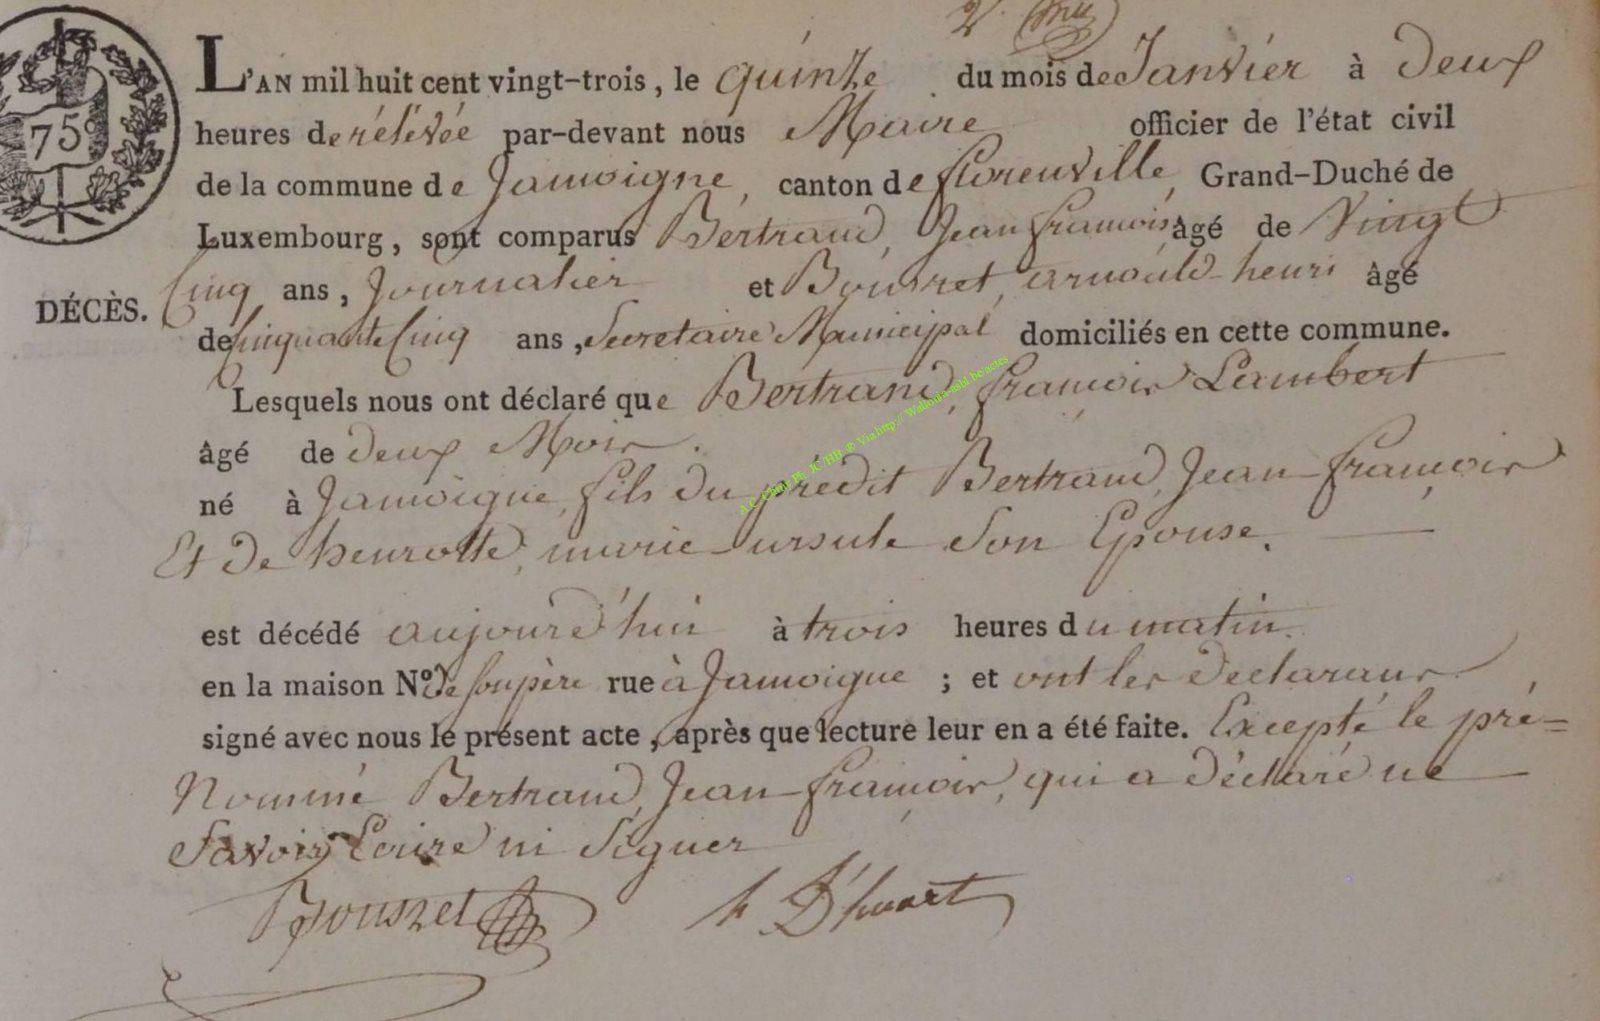 2e
75c
L'AN mil huit cent vingt-trois, le quinze du mois de Janvier à deux
heures de rélévée par-devant nous Maire officier de l'état civil
de la commune de Jamoigne, canton de florenville, Grand-Duché de
Luxembourg, sont comparus Bertrand, Jean françois âgé de Vingt
Cinq ans, Journalier et Bousret, arnould-henri âgé
DÉCÈS.
de Cinquante Cinq ans, Secretaire Municipal domiciliés en cette commune.
Lesquels nous ont déclaré que Bertrand, françois Lambert
âgé de deux Mois.
né à Jamoigne, fils du prédit Bertrand, Jean-françois
Et de henrotte, marie-ursule Son Epouse.
est décédé aujourd'hui à trois heures du matin.
en la maison No de Son père rue à Jamoigne ; et ont les déclarans
signé avec nous le présent acte, après que lecture leur en a été faite. Excepté le pré=
Nommé Bertrand, Jean-françois, qui a déclaré ne
Savoir Ecrire ni Signer
Bousret h D'huart